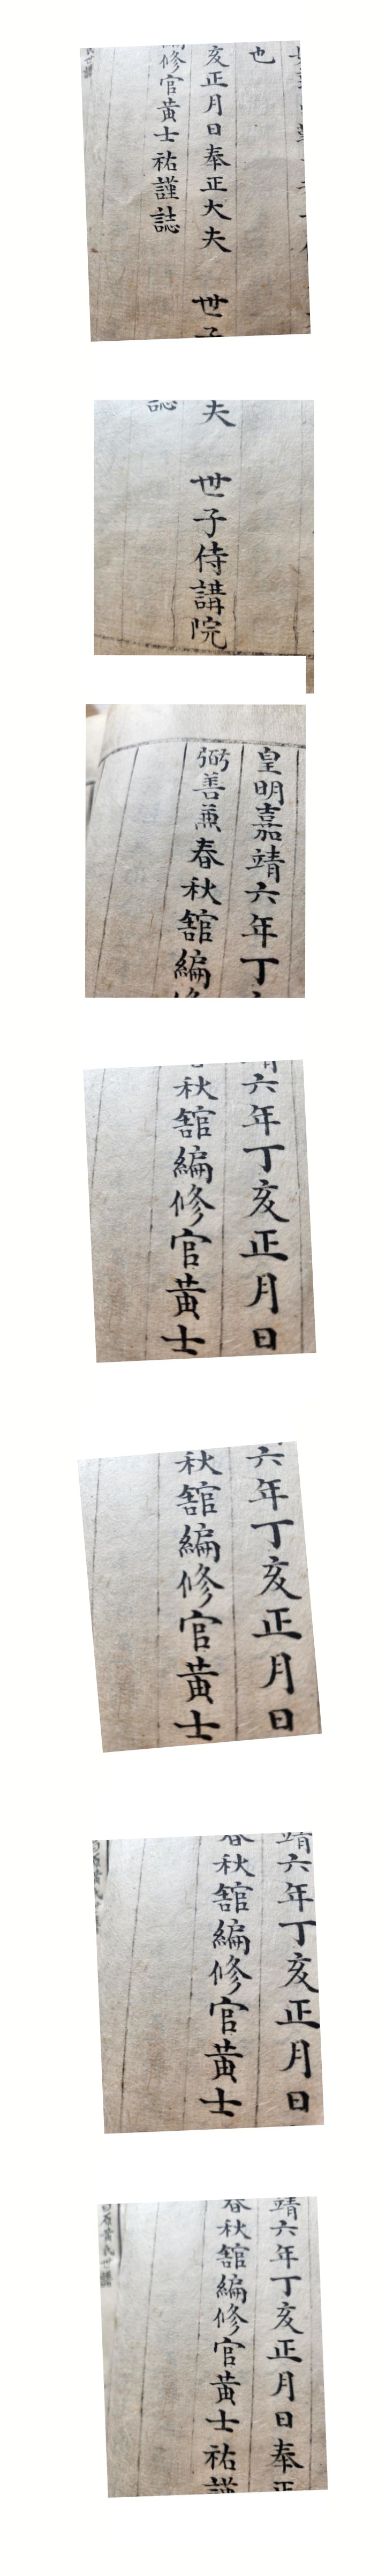 也
亥正月日奉正大夫 世子
修官黃士祐謹誌
夫 世子侍講院
誌
皇明嘉靖六年丁
弼善兼春秋舘編
靖六年丁亥正月日
秋舘編修官黃士
六年丁亥正月日
秋舘編修官黃士
靖六年丁亥正月日
春秋舘編修官黃士
靖六年丁亥正月日奉正
春秋舘編修官黃士祐謹